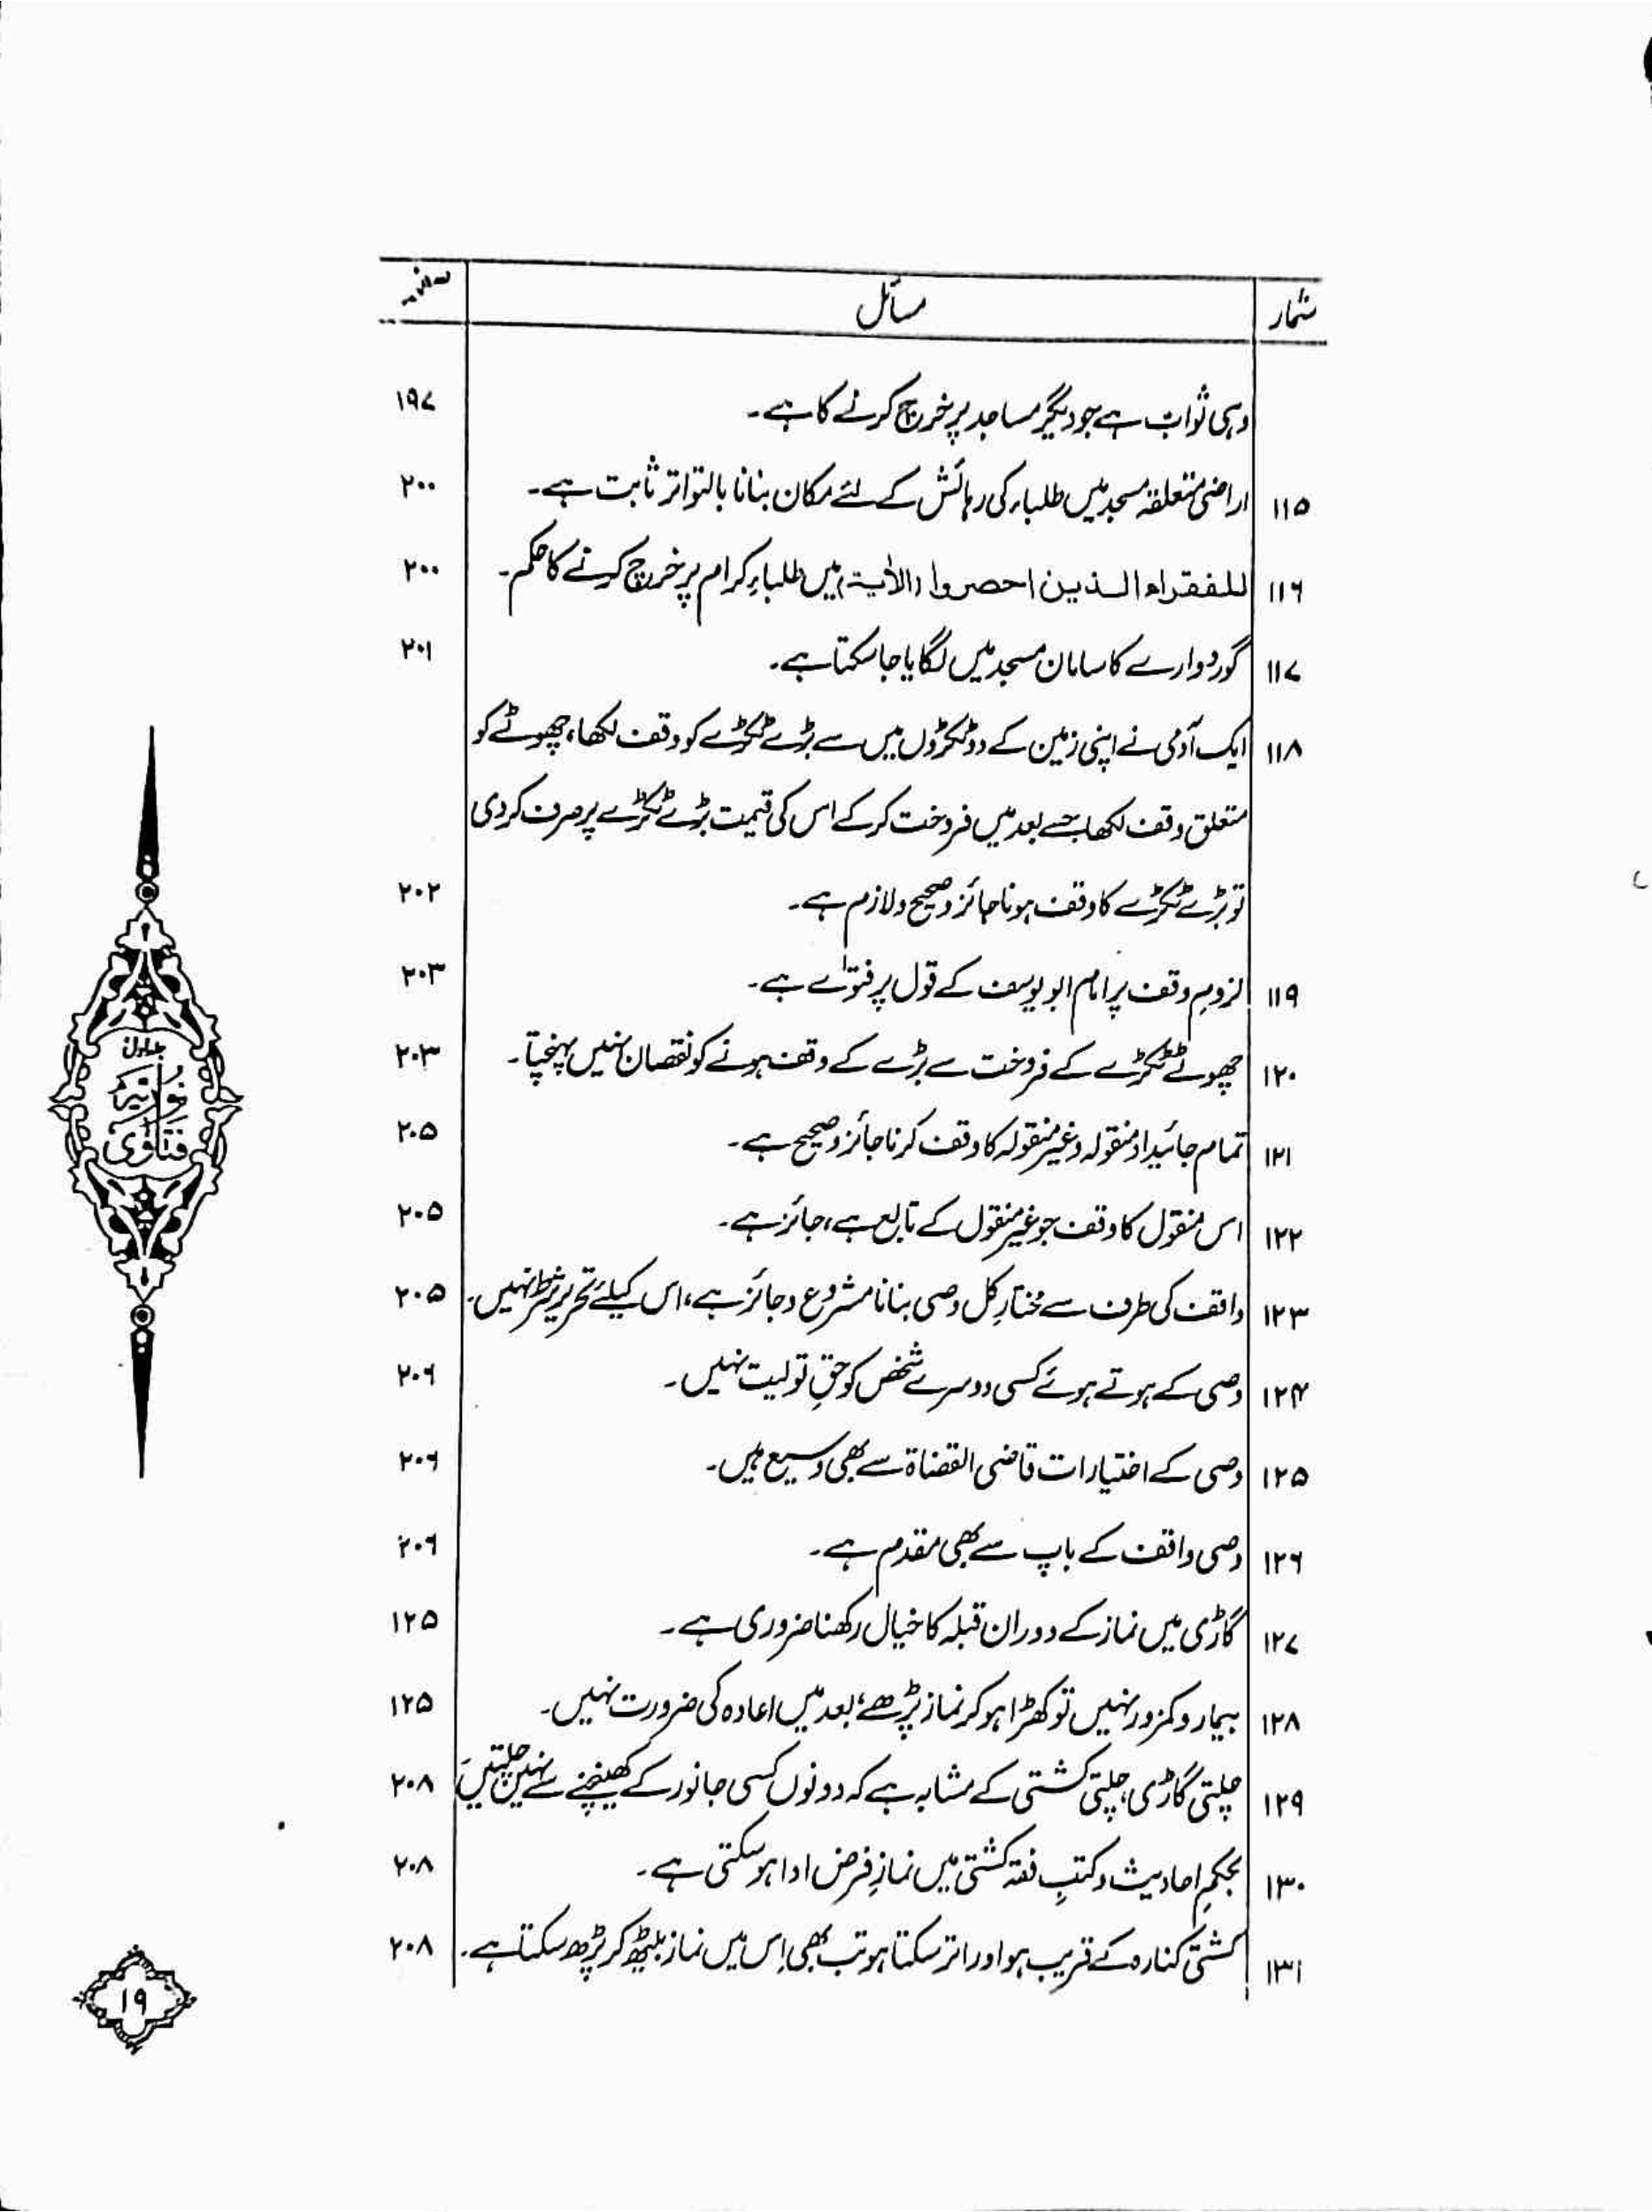 شمار مسائل صفحہ
وہی ثواب ہے جو دیگر مساجد پر خرچ کرنے کا ہے۔ ۱۹۷
۱۱۵ اراضی متعلقہ مسجد میں طلباء کی رہائش کے لئے مکان بنانا بالتواتر ثابت ہے۔ ۲۰۰
۱۱۶ للفقراء الذین احصروا (الاٰیۃ) میں طلباءِ کرام پر خرچ کرنے کا حکم۔ ۲۰۰
۱۱۷ گوردوارے کا سامان مسجد میں لگایا جا سکتا ہے۔ ۲۰۱
۱۱۸ ایک آدمی نے اپنی زمین کے دو ٹکڑوں میں سے بڑے ٹکڑے کو وقف لکھا، چھوٹے کو
متعلق وقف لکھا جسے بعد میں فروخت کر کے اس کی قیمت بڑے ٹکڑے پر صرف کر دی
تو بڑے ٹکڑے کا وقف ہونا جائز و صحیح و لازم ہے۔ ۲۰۲
۱۱۹ لزومِ وقف پر امام ابو یوسف کے قول پر فتوٰے ہے۔ ۲۰۳
۱۲۰ چھوٹے ٹکڑے کے فروخت سے بڑے کے وقف ہونے کو نقصان نہیں پہنچتا۔ ۲۰۳
۱۲۱ تمام جائیداد منقولہ و غیر منقولہ کا وقف کرنا جائز و صحیح ہے۔ ۲۰۵
۱۲۲ اس منقول کا وقف جو غیر منقول کے تابع ہے، جائز ہے۔ ۲۰۵
۱۲۳ واقف کی طرف سے مختارِ کل وصی بنانا مشروع و جائز ہے، اس کیلئے تحریر شرط نہیں۔ ۲۰۵
۱۲۴ وصی کے ہوتے ہوئے کسی دوسرے شخص کو حقِ تولیت نہیں۔ ۲۰۶
۱۲۵ وصی کے اختیارات قاضی القضاۃ سے بھی وسیع ہیں۔ ۲۰۶
۱۲۶ وصی واقف کے باپ سے بھی مقدم ہے۔ ۲۰۶
۱۲۷ گاڑی میں نماز کے دوران قبلہ کا خیال رکھنا ضروری ہے۔ ۱۲۵
۱۲۸ بیمار و کمزور نہیں تو کھڑا ہو کر نماز پڑھے، بعد میں اعادہ کی ضرورت نہیں۔ ۱۲۵
۱۲۹ چلتی گاڑی، چلتی کشتی کے مشابہ ہے کہ دونوں کسی جانور کے کھینچنے سے نہیں چلتیں ۲۰۸
۱۳۰ بحکمِ احادیث و کتبِ فقہ کشتی میں نمازِ فرض ادا ہو سکتی ہے۔ ۲۰۸
۱۳۱ کشتی کنارہ کے قریب ہو اور اتر سکتا ہو تب بھی اِس میں نماز بیٹھ کر پڑھ سکتا ہے۔ ۲۰۸
جلد اول
نوریہ
فتاوٰی
۱۹